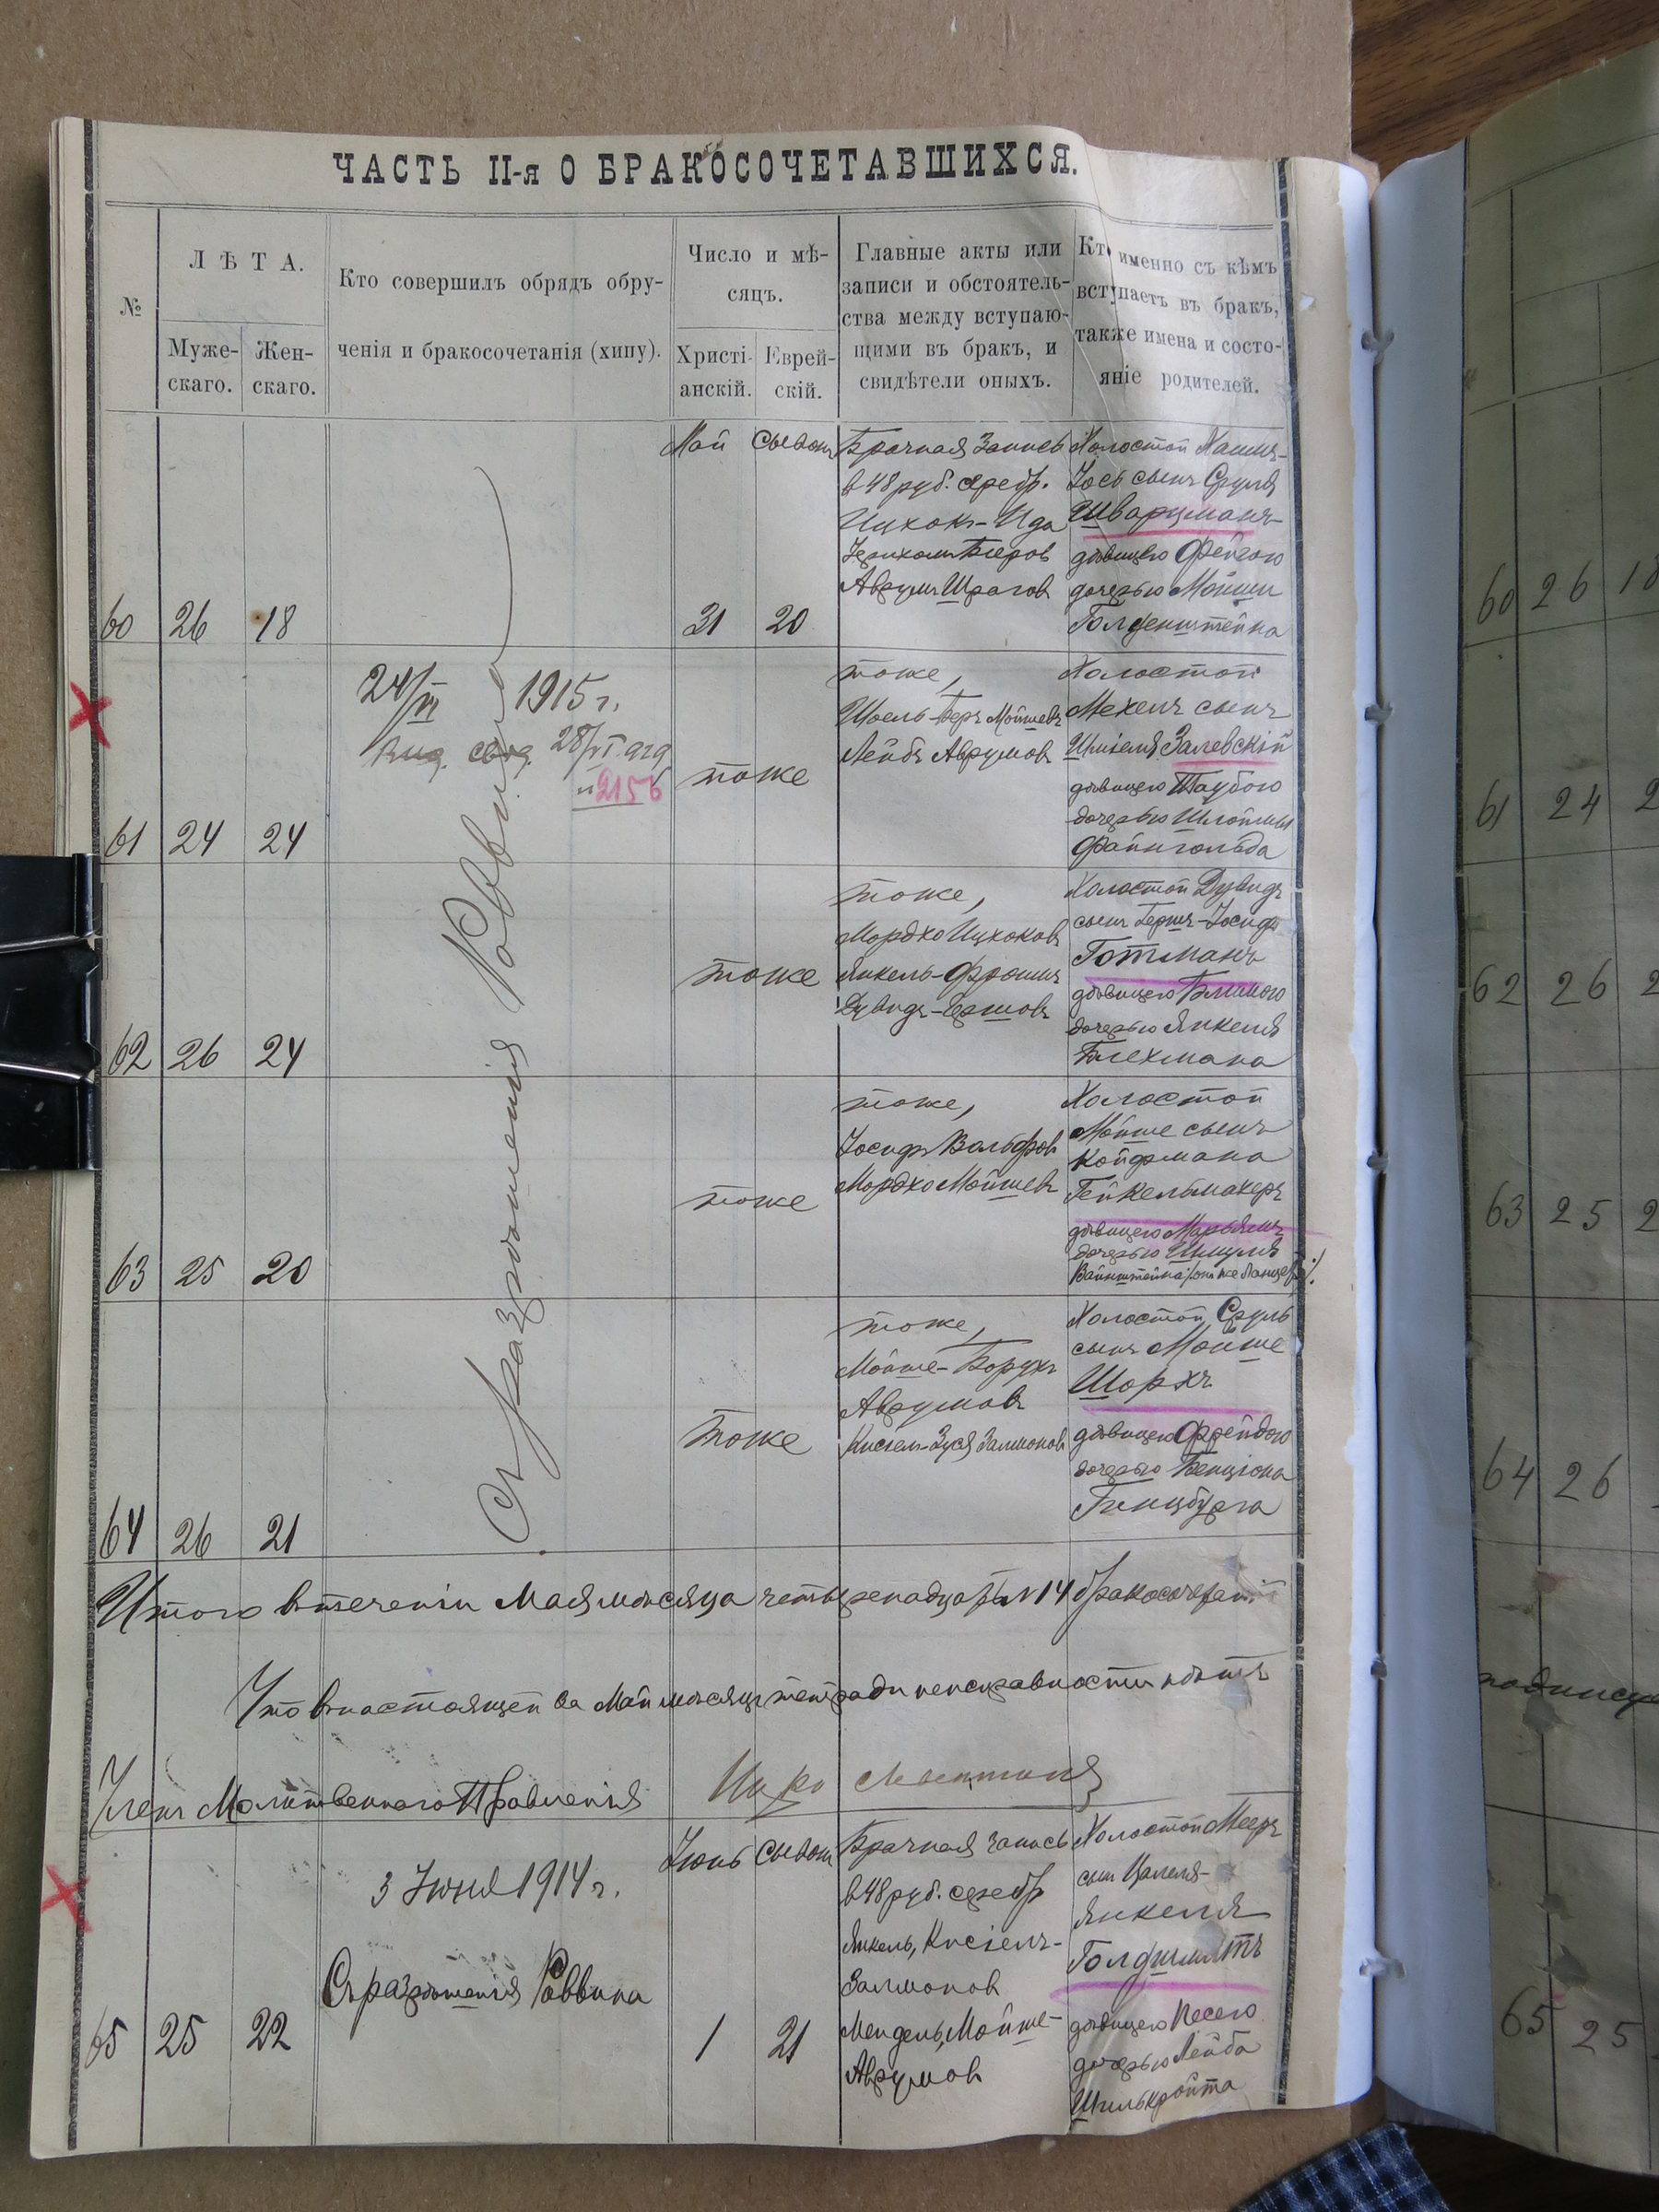 ЧАСТЬ II-я О БРАКОСОЧЕТАВШИХСЯ.
№
ЛѢТА.
Муже-
скаго.
Жен-
скаго.
Кто совершилъ обрядъ обру-
ченія и бракосочетанія (хипу).
Число и мѣ-
сяцъ.
Христі-
анскій.
Еврей-
скій.
Главные акты или
записи и обстоятель-
ства между вступаю-
щими въ бракъ, и
свидѣтели оныхъ.
Кто именно съ кѣмъ
вступаетъ въ бракъ,
также имена и состо-
яніе родителей.
60
26
18
Май
31
Сывонъ
20
Брачная Запись
в 48 руб. серебр.
Ицхокъ-Ида
Бееров
Аврумъ Шрагов
Холостой Хаимъ-
Іось сынъ Сруля
Шварцманъ
дѣвицею Фейгою
дочерью Мойши
Голденштейна
Съ разрѣшенія Раввина
61
24
24
24/VI 1915 г.
Выд. свид. 28/VI
№ 2156
тоже
тоже,
Шоель-Беръ Мойшевъ
Лейбъ Аврумовъ
Холостой
Мехель сынъ
Шміеля Залевскій
дѣвицею Таубою
дочерью Шлоймы
Файнгольда
62
26
24
тоже
тоже,
Мордхо Ицхоковъ
Янкель-Фроимъ
Дувидъ-Гершовъ
Холостой Дувидъ
сынъ Гершъ-Іосифа
Готманъ
дѣвицею Блимою
дочерью Янкеля
Блехмана
63
25
20
тоже
тоже,
Іосифъ Вольфов
Мордхо Мойшевъ
Холостой
Мойше сынъ
Койфмана
Гейкельмахеръ
дѣвицею Марьямъ
дочерью Шмуля
Вайнштейна /онъ же
64
26
21
тоже
тоже,
Мойше-Борухъ
Аврумовъ
Кисіел-Зуся Залмоновъ
Холостой Сруль
сынъ Мойше
Шорхъ
дѣвицею Фрейдою
дочерью Бенціона
Гинцбурга
Итого втеченіи Мая мѣсяца четырнадцать 14 бракосочетаній
Что внастоящей за Май мѣсяцъ тетради неисправности нѣтъ
Членъ Молитвеннаго Правленія
65
25
22
3 Іюня 1914 г.
Съ разрѣшенія Раввина
Іюнь
1
Сывонъ
21
Брачная запись
в 48 руб. серебр
Янкель, Кисіель-
Залмонов
Мендель, Мойше-
Аврумов
Холостой Мееръ
сынъ Цалеля-
Янкеля
Голдшмитъ
дѣвицею Песею
дочерью Лейба
Шилькройта
60 26 18
61 24 2
62 26 2
63 25 2
64 26
65 25